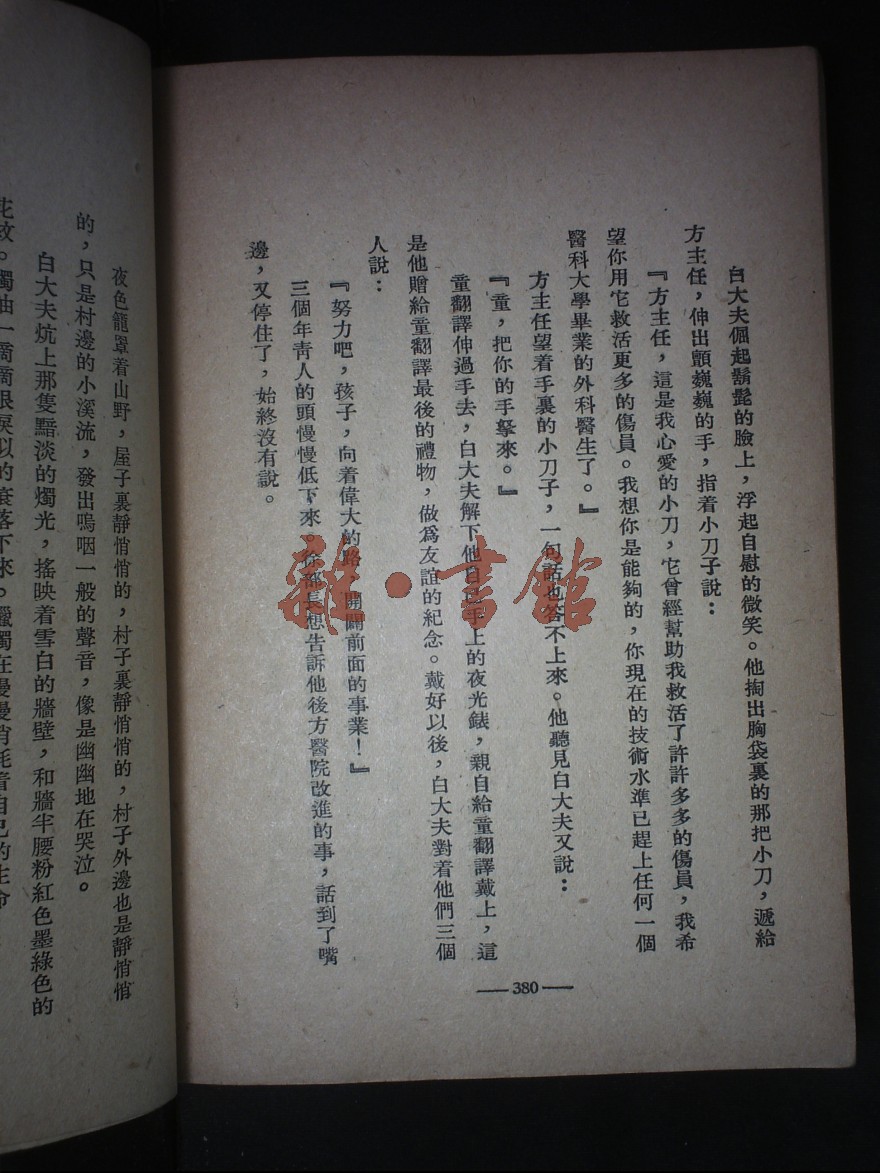 白大夫倔起鬍髭的臉上，浮起自慰的微笑。他掏出胸袋裏的那把小刀，遞給
方主任，伸出顫巍巍的手，指着小刀子說：
『方主任，這是我心愛的小刀，它曾經幫助我救活了許許多多的傷員，我希
望你用它救活更多的傷員。我想你是能夠的，你現在的技術水準已趕上任何一個
醫科大學畢業的外科醫生了。』
方主任望着手裏的小刀子，一句話也答不上來。他聽見白大夫又說：
『童，把你的手拏來。』
童翻譯伸過手去，白大夫解下他自己手上的夜光錶，親自給童翻譯戴上，這
是他贈給童翻譯最後的禮物，做爲友誼的紀念。戴好以後，白大夫對着他們三個
人說：
『努力吧，孩子，向着偉大的路，開闢前面的事業！』
三個年靑人的頭慢慢低下來。徐部長想告訴他後方醫院改進的事，話到了嘴
邊，又停住了，始終沒有說。
— 380 —
雜·書館
夜色籠罩着山野，屋子裏靜悄悄的，村子裏靜悄悄的，村子外邊也是靜悄悄
的，只是村邊的小溪流，發出嗚咽一般的聲音，像是幽幽地在哭泣。
白大夫炕上那隻黯淡的燭光，搖映着雪白的牆壁，和牆半腰粉紅色墨綠色的
花紋。燭油一滴滴眼淚似的滾落下來，蠟燭在慢慢消耗着自己的生命